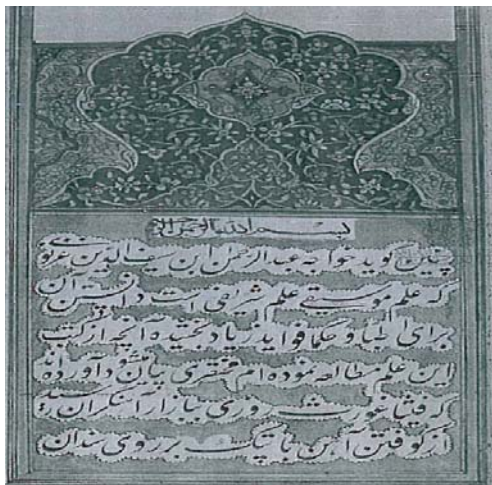 بسم الله الرحمن الرحیم
چنین گوید خواجه عبدالرحمن ابن سیف الدین غزنوی
که علم موسیقی علم شریفی است دانستن آن
برای اطبا و حکما فواید زیاد بخشیده آنچه از کتب
این علم مطالعه نموده ام مختصری بیان میشود آورده اند
که فیثاغورث روزی ببازار آهنگران رسید
از کوفتن آهن با پتک بر روی سندان